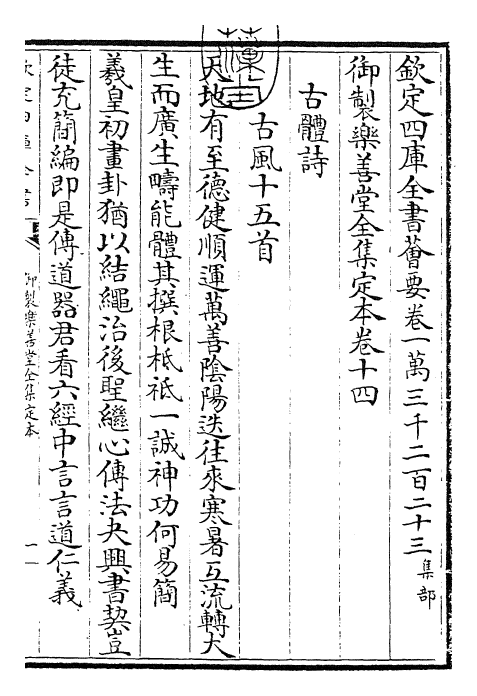 欽定四庫全書薈要卷一萬三千二百二十三集部
御製樂善堂全集定本卷十四
古體詩
古風十五首
天地有至德健順運萬善陰陽迭往來寒暑互流轉大
生而廣生疇能體其撰根柢祇一誠神功何易簡
羲皇初畫卦猶以結繩治後聖繼心傳法夬興書契豈
徒充簡編即是傳道器君看六經中言言道仁義
御製樂善堂全集定本
一